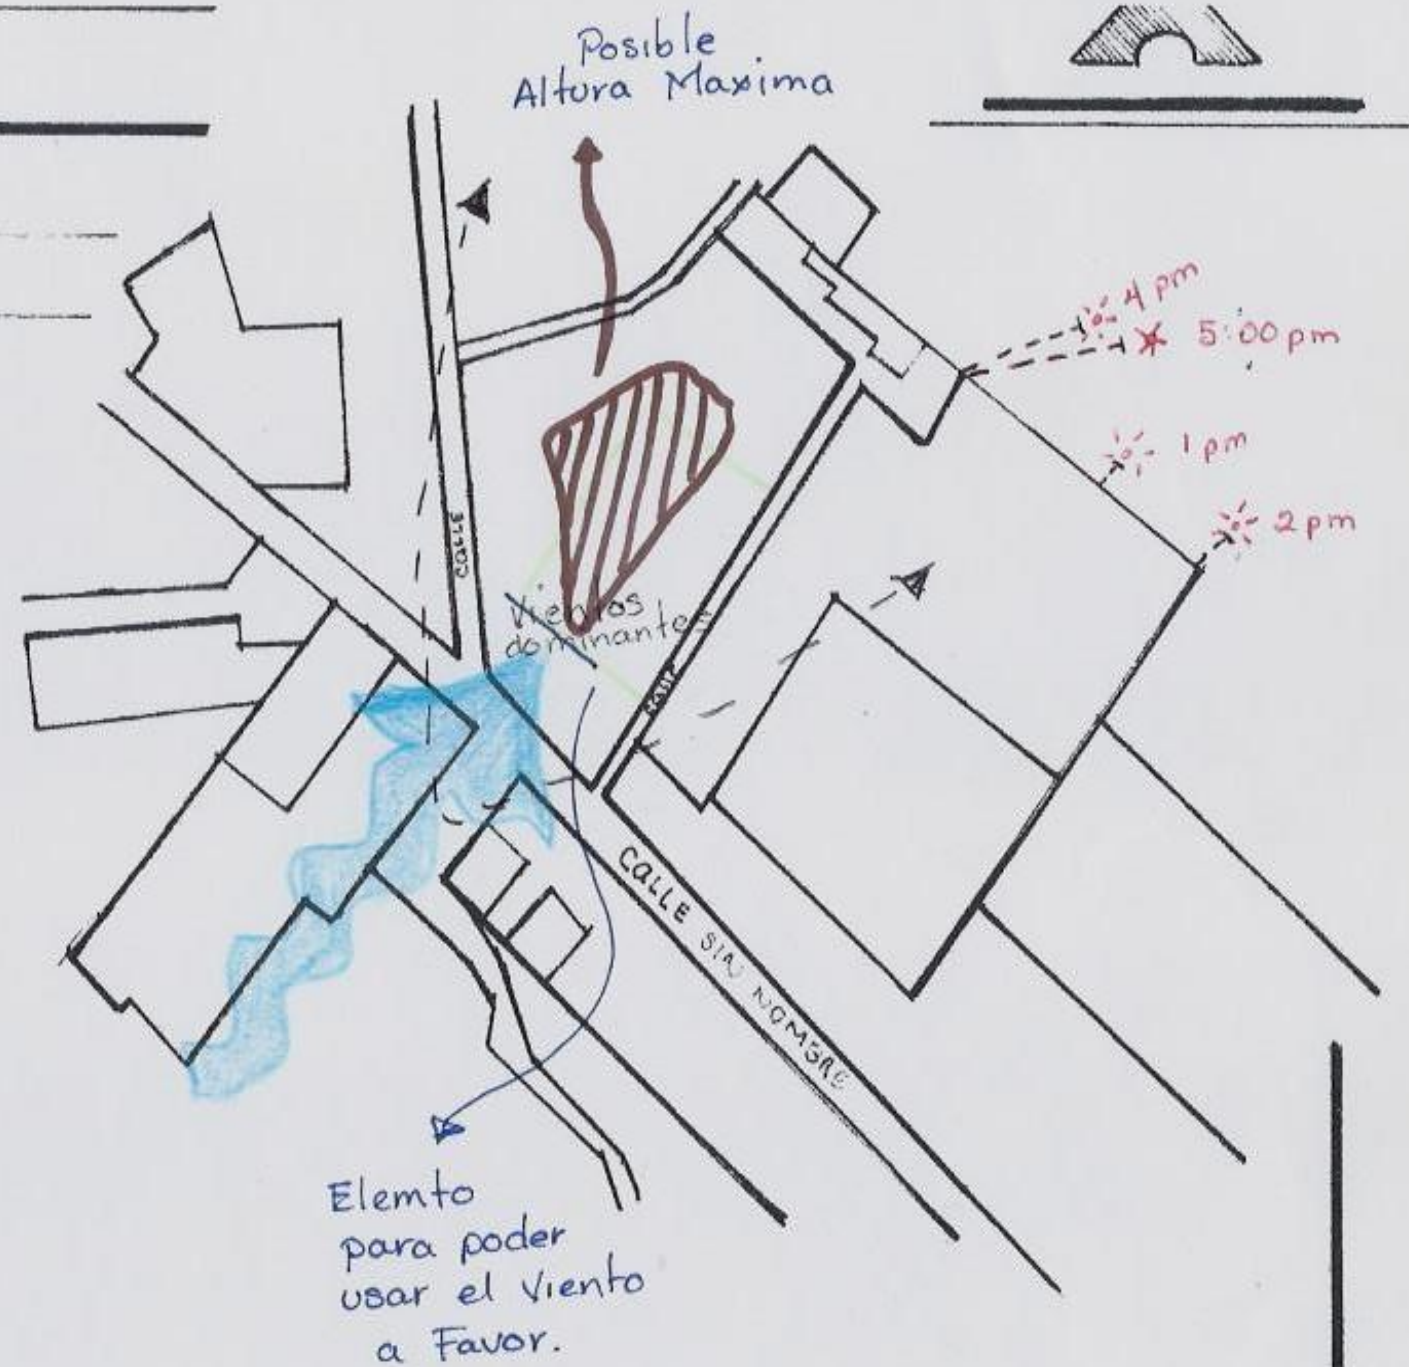 Posible
Altura Maxima
4 pm
5:00 pm
1 pm
2 pm
calle
Vientos
dominantes
calle
CALLE SIN NOMBRE
Elemto
para poder
usar el Viento
a Favor.